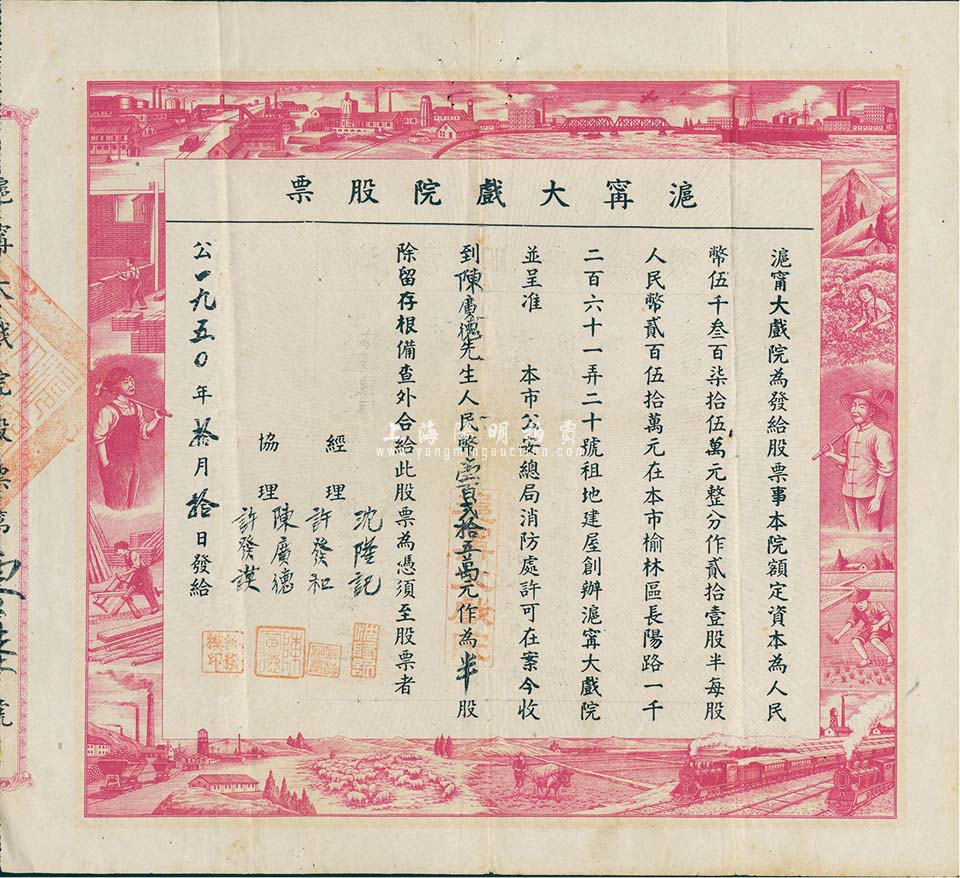 滬甯大戲院股票
滬甯大戲院為發給股票事本院額定資本為人民
幣伍千叁百柒拾伍萬元整分作貳拾壹股半每股
人民幣貳百伍拾萬元在本市榆林區長陽路一千
二百六十一弄二十號祖地建屋創辦滬甯大戲院
並呈准 本市公安總局消防處許可在案今收
到陳廣德先生人民幣壹百貳拾五萬元作為半股
除留存根備查外合給此股票為憑須至股票者
經理
沈陞記
許發和
協理
陳廣德
許發謨
公一九五〇年拾月拾日發給
滬甯大戲院股票第
號
上海陽明拍賣
www.yangmingauction.com